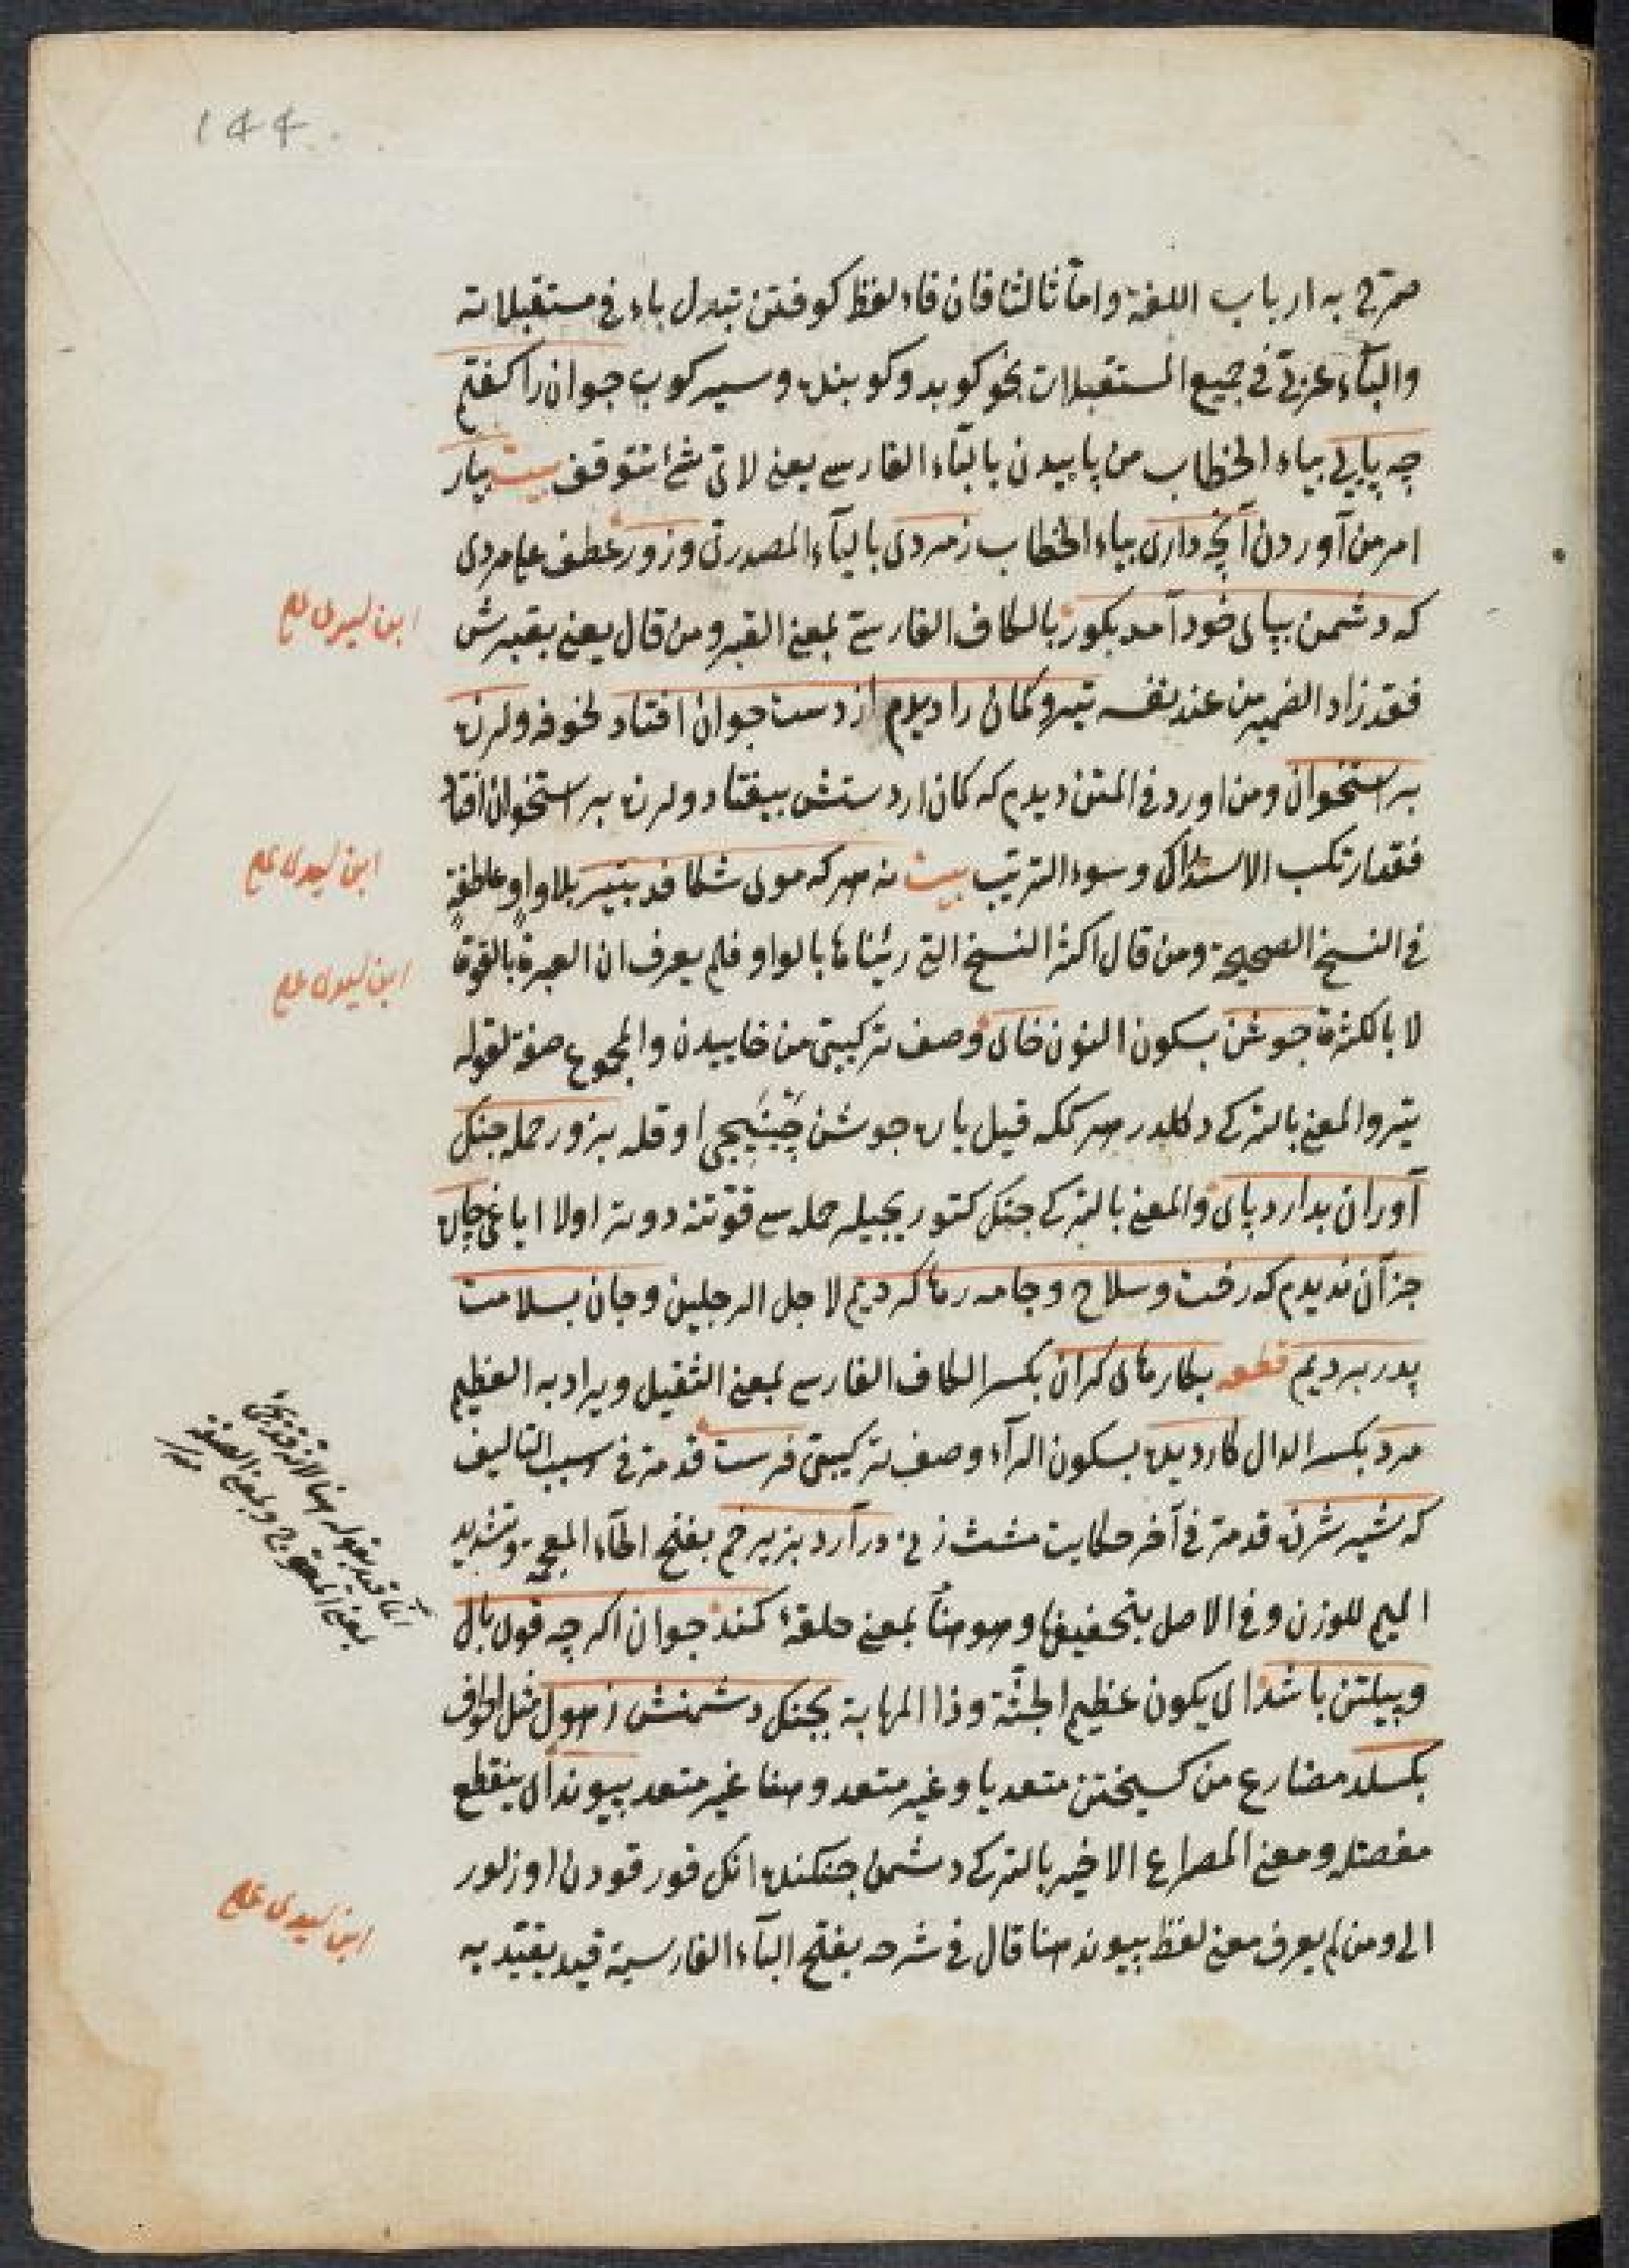 144
صرّح به ارباب اللغة واما ثالثا فان فاء لفظ كوفتن تبدل باء فى مستقبلاته
والباء عربى فى جميع المستقبلات نحو كوبد وكوبنده وسيركوب جوان را كفتم
چه پايى بياء الخطاب من پاييدن بالباء الفارسى يعنى لاى شئ تتوقف بيت بيار
امر من آوردن آنچه دارى بياء الخطاب زمردى بالياء المصدرى وزور عطف على مردى
كه دشمن بپاى خود آمد بكور بالكاف الفارسى بمعنى القبر ومن قال يعنى بقبرش
فقد زاد الضمير من عند نفسه تير وكمان را ديدم از دست جوان افتاد لخوفه ولرزه
بر استخوان ومن اورد فى المتن ديدم كه كمان ازدستش بيفتاد ولرزه بر استخوان افتاد
فقد ارتكب الاستدراك وسوء الترتيب بيت نه هر كه موى شكافد بتير بلا واو عاطفة
فى النسخ الصحيحة ومن قال اكثر النسخ التى رئيناها بالواو فلم يعرف ان العبرة بالقوة
لا بالكثرة جوشن بسكون النون خاى وصف تركيبى من خاييدن والمجموع صفة لقوله
بتير والمعنى بالتركى دكلدر هر كه قيل ياره جوشن چينيجى اوقله بروز حمله جنك
آوران بدارد پاى والمعنى بالتركى جنك كتوريجيله حمله سى قوتنه دوته اولا اياغى چاره
جز آن نديدم كه رخت وسلاح وجامه رها كرديم لاجل الرجلين وجان بسلامت
بدر برديم قطعه بكارهاى كران بكسر الكاف الفارسى بمعنى الثقيل ويراد به العظيم
مرد بكسر الدال كارديده بسكون الراء وصف تركيبى فرست قد مرّ فى سبب التاليف
كه شير شرزه قد مرّ فى آخر حكايت مشت زن در آرد بزير خم بفتح الخاء المعجمة وتشديد
الميم للوزن وفى الاصل بتخفيفها وهو هنا بمعنى حلقهٔ كمند جوان اكر چه قوى يال
وپيلتن باشد اى يكون عظيم الجثة وذا المهابة بجنك دشمنش از هول مثل الخوف
بكسلد مضارع من كسيختن متعديا وغير متعد وهنا غير متعد پيوند اى ينقطع
مفصله ومعنى المصراع الاخير بالتركى دشمن جنكنده انك قورقودن اوزلور
الى ومن لم يعرف معنى لفظ پيوند هنا قال فى شرحه بفتح الباء الفارسية قيد يقيّد به
ابن ليدى على
ابن ليدى على
ابن ليدى على
انما قيد بقوله هنا لانه قد يجئ
بمعنى المعوج وبمعنى الصفة
منه
ابن ليدى على